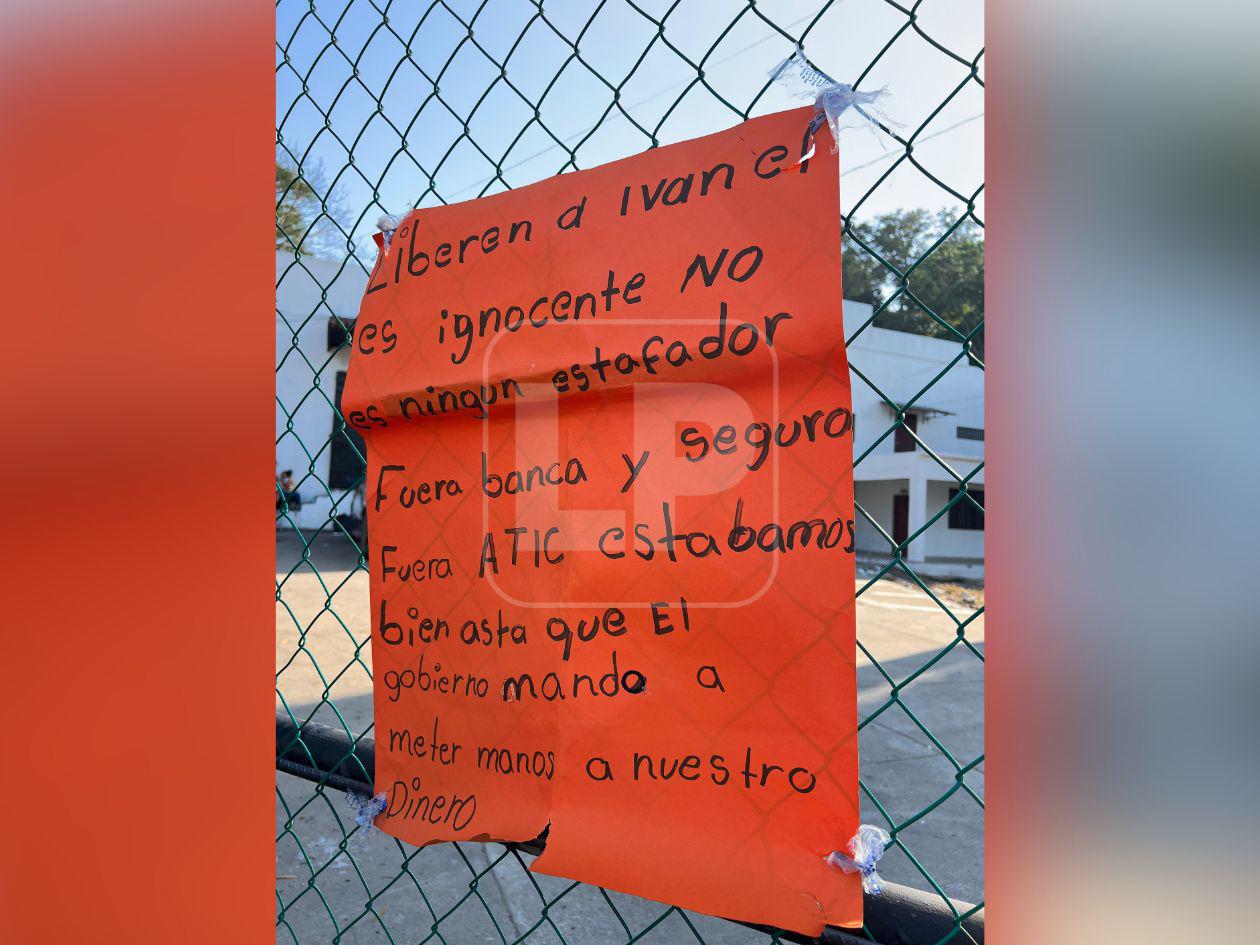 Liberen a Ivan el
es ignocente NO
es ningun estafador
Fuera banca y seguro
Fuera ATIC estabamos
bien asta que El
gobierno mando a
meter manos a nuestro
Dinero
LP